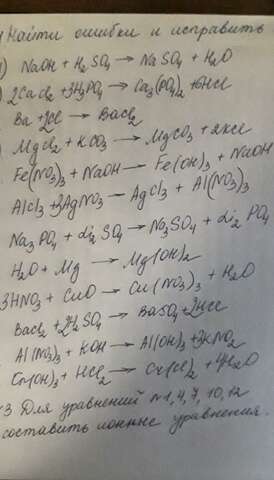 Найти ошибки и исправить
1) NaOH + H₂SO₄ → NaSO₄ + H₂O
2CaCl₂ + 3H₃PO₄ → Ca₃(PO₄)₂ + 6HCl
Ba + 2Cl → BaCl₂
MgCl₂ + KCO₃ → MgCO₃ + 2KCl
Fe(NO₃)₃ + NaOH → Fe(OH)₃ + NaOH
AlCl₃ + 3AgNO₃ → AgCl₃ + Al(NO₃)₃
Na₃PO₄ + Li₂SO₄ → Na₃SO₄ + Li₂PO₄
H₂O + Mg → Mg(OH)₂
3HNO₃ + CuO → Cu(NO₃)₃ + H₂O
BaCl₂ + 2H₂SO₄ → BaSO₄ + 2HCl
Al(NO₃)₃ + KOH → Al(OH)₃ + 3KNO₂
Cr(OH)₃ + HCl₂ → Cr(Cl)₂ + 4H₂O
3 Для уравнений n 1, 4, 7, 10, 12
составить ионные уравнения.